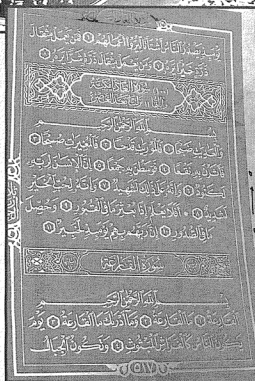 يَوْمَئِذٍ يَصْدُرُ النَّاسُ أَشْتَاتًا لِيُرَوْا أَعْمَالَهُمْ فَمَنْ يَعْمَلْ مِثْقَالَ
ذَرَّةٍ خَيْرًا يَرَهُ وَمَنْ يَعْمَلْ مِثْقَالَ ذَرَّةٍ شَرًّا يَرَهُ
سورة العاديات مكية
بِسْمِ اللَّهِ الرَّحْمَٰنِ الرَّحِيمِ
وَالْعَادِيَاتِ ضَبْحًا فَالْمُورِيَاتِ قَدْحًا فَالْمُغِيرَاتِ صُبْحًا
فَأَثَرْنَ بِهِ نَقْعًا فَوَسَطْنَ بِهِ جَمْعًا إِنَّ الْإِنْسَانَ لِرَبِّهِ
لَكَنُودٌ وَإِنَّهُ عَلَىٰ ذَٰلِكَ لَشَهِيدٌ وَإِنَّهُ لِحُبِّ الْخَيْرِ
لَشَدِيدٌ أَفَلَا يَعْلَمُ إِذَا بُعْثِرَ مَا فِي الْقُبُورِ وَحُصِّلَ
مَا فِي الصُّدُورِ إِنَّ رَبَّهُمْ بِهِمْ يَوْمَئِذٍ لَخَبِيرٌ
سورة القارعة
بِسْمِ اللَّهِ الرَّحْمَٰنِ الرَّحِيمِ
الْقَارِعَةُ مَا الْقَارِعَةُ وَمَا أَدْرَاكَ مَا الْقَارِعَةُ يَوْمَ
يَكُونُ النَّاسُ كَالْفَرَاشِ الْمَبْثُوثِ وَتَكُونُ الْجِبَالُ